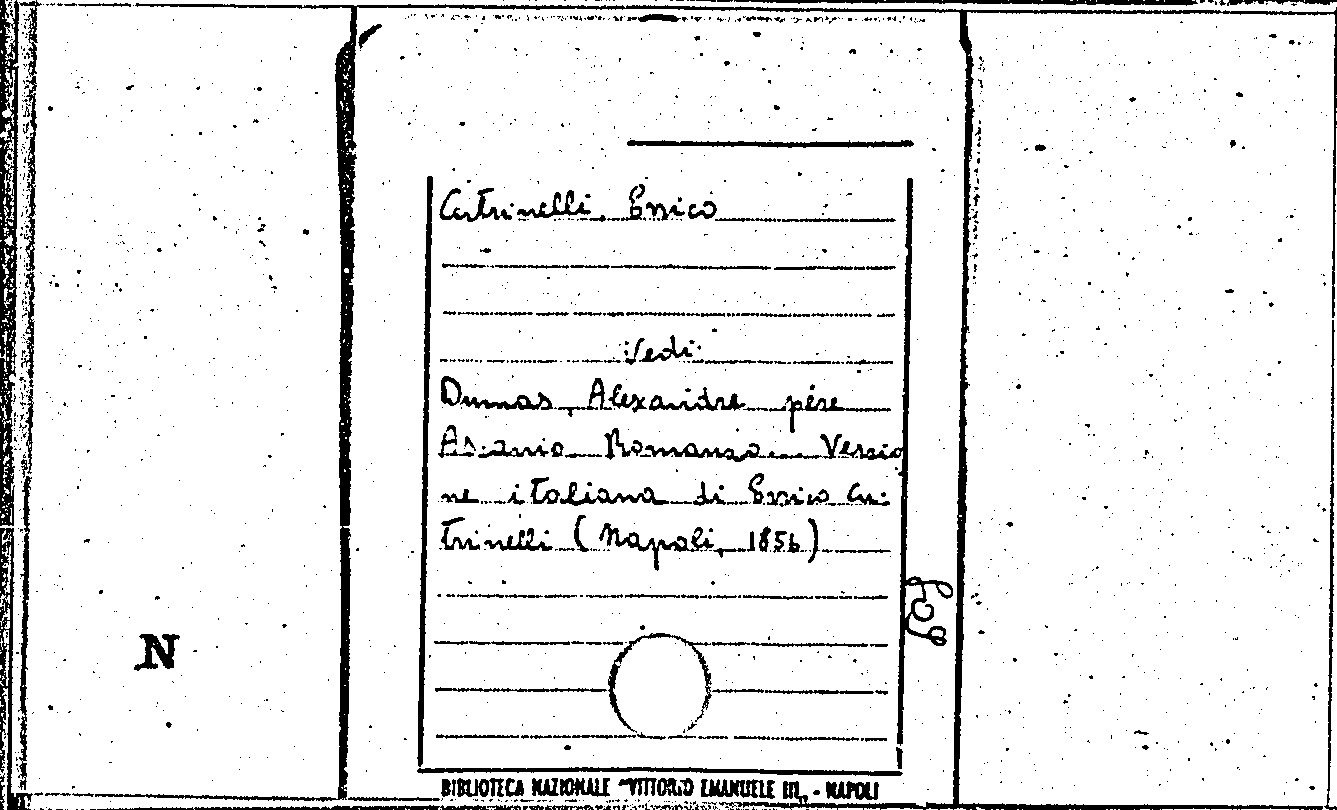 Cutrinelli, Errico
Vedi:
Dumas, Alexandre père
Ascanio. Romanzo. Versio
ne italiana di Errico Cu-
trinelli (Napoli, 1856)
N
BIBLIOTECA NAZIONALE "VITTORIO EMANUELE III„ - NAPOLI